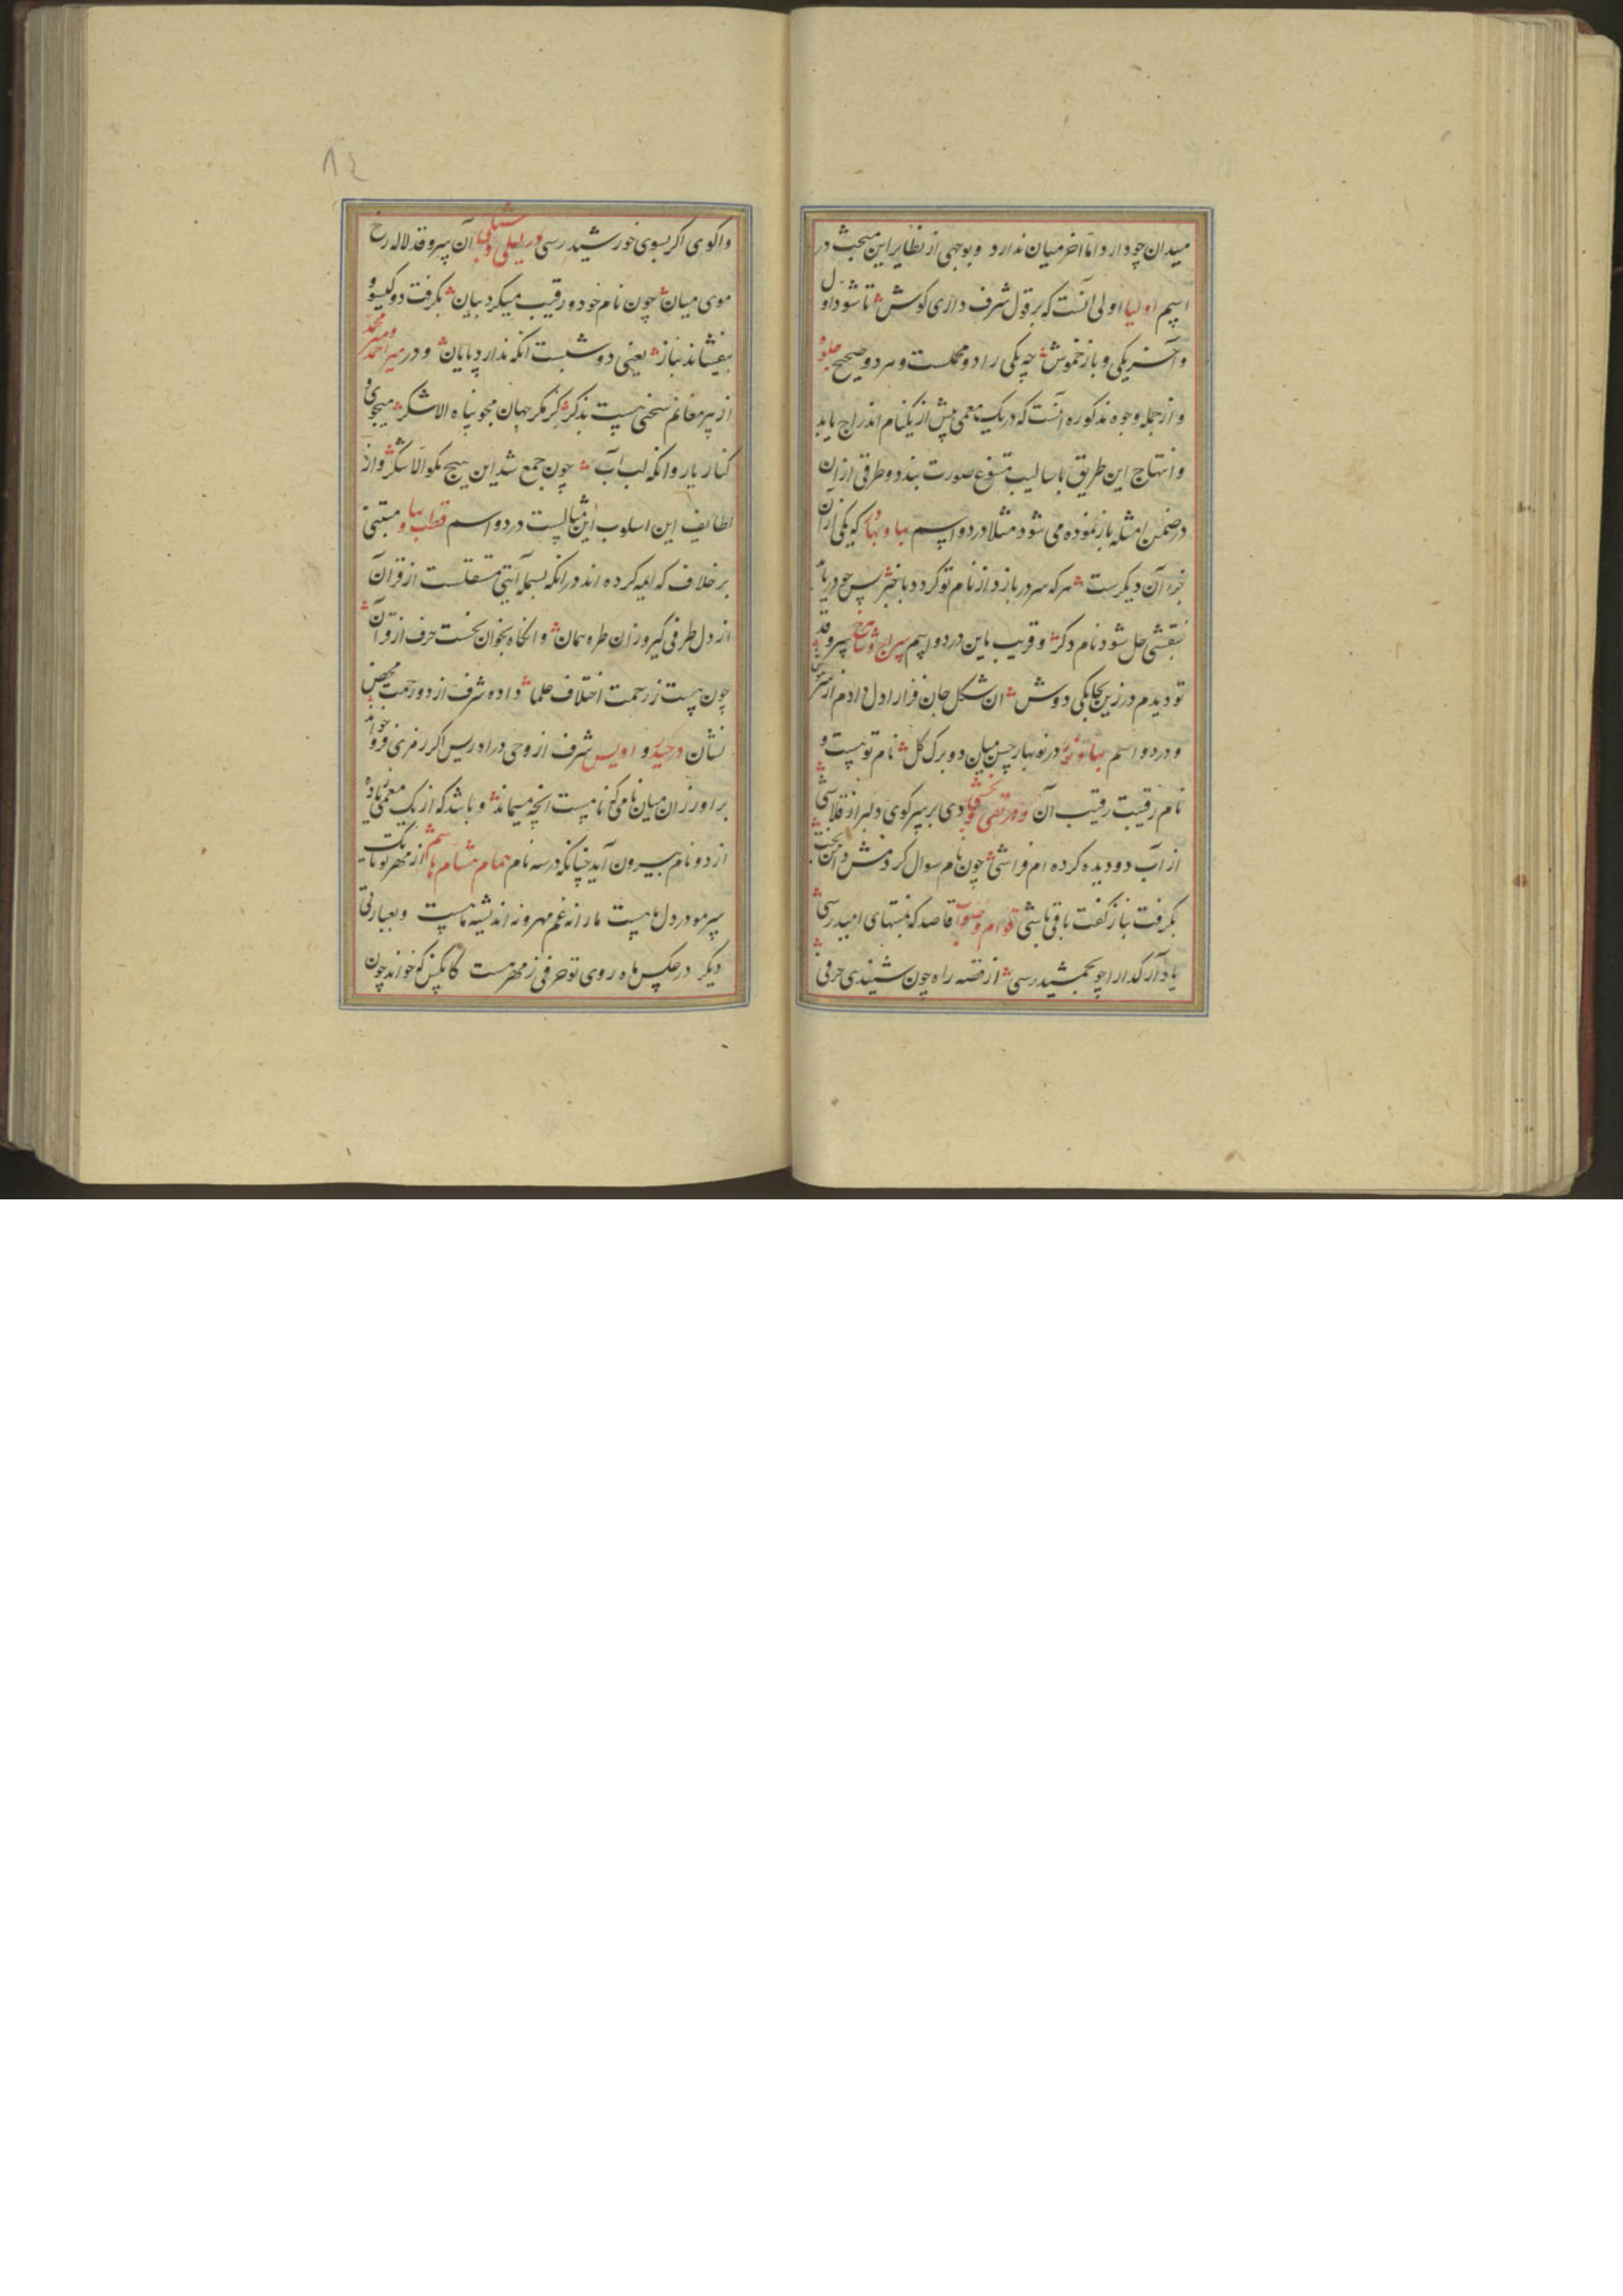 میدان چو دارد اما اخر میان ندارد و بوجهی از نظایر این مبحث در
اسم اولیا اولی آنست که بر قول شرف داری کوش تا شود اول
و آخر یکی و باز خموش چه یکی را دو محلست و هر دو صحیح
و از جمله وجوه مذکوره آنست که در یک معمی پیش از یکنام اندراج یابد
و انتهاج این طریق باسالیب متنوع صورت بندد و طرفی از ان
در ضمن امثله باز نموده می شود مثلا در دو اسم بها و بهاء که یکی از آن
جزء آن دیکرست هر که سر در بازد از نام تو کردد با خبر پس چو دریابد
بنقشی حل شود نام دکر و قریب باین در دو اسم سراج و سرو قد
تو دیدم در زین بچابکی دوش ان شکل جان فزا را دل دادم از
و در دو اسم بها در نوبهار چمن میان دو برک کل نام تو هست و
نام رقیبت رقیب آن و در تقی دی بر سر کوی دلبر از قلاشی
از آب دو دیده کرده ام فراشی چون نام سوال کردمش
بکرفت بناز کفت باقی باشی قاصد که بمنتهای امید رسی
یاد آر کدا را چو بجمشید رسی از قصه راه چون شنیدی حرفی
٨٤
واکوی اکر بسوی خورشید رسی در لیلی و آن سرو قد لاله رخ
موی میان چون نام خود و رقیب میکرد بیان بکرفت دو کیسو و
بیفشاند بناز یعنی دو شبست انکه ندارد پایان و در میر احمد و میر محمد
از پیر مغانم سخنی هست بذکر کز مکر جهان مجو پناه الا شکر میجوی و
کنار یار وانکه لب آب چون جمع شد این هیچ مکو الا شکر و از
لطایف این اسلوب این مثالیست در دو اسم قطب و بها مبتنی
بر خلاف که ایمه کرده اند در انکه بسمله آیتی مستقلست از قرآن
از دل طرفی کیر وزان طره همان وانکاه بخوان نخست حرف از قرآن
چون هست ز رحمت اختلاف علما داده شرف از دو رحمت محض
نشان در حیدر و اویس شرف از وحی در ادریس اکر رمزی فرو خواند
براورزان میان نامی که نامیست انچه میماند و باشد که از یک معمی زیاده
از دو نام بیرون آید چنانکه در سه نام همام هشام هاشم از مهر تو تا یک
سر مو در دل ماست ما را نه غم مهر و نه اندیشه ماست و بعبارتی
دیکر در عکس ماه روی تو حرفی ز مهر هست کانکس که خواند چون